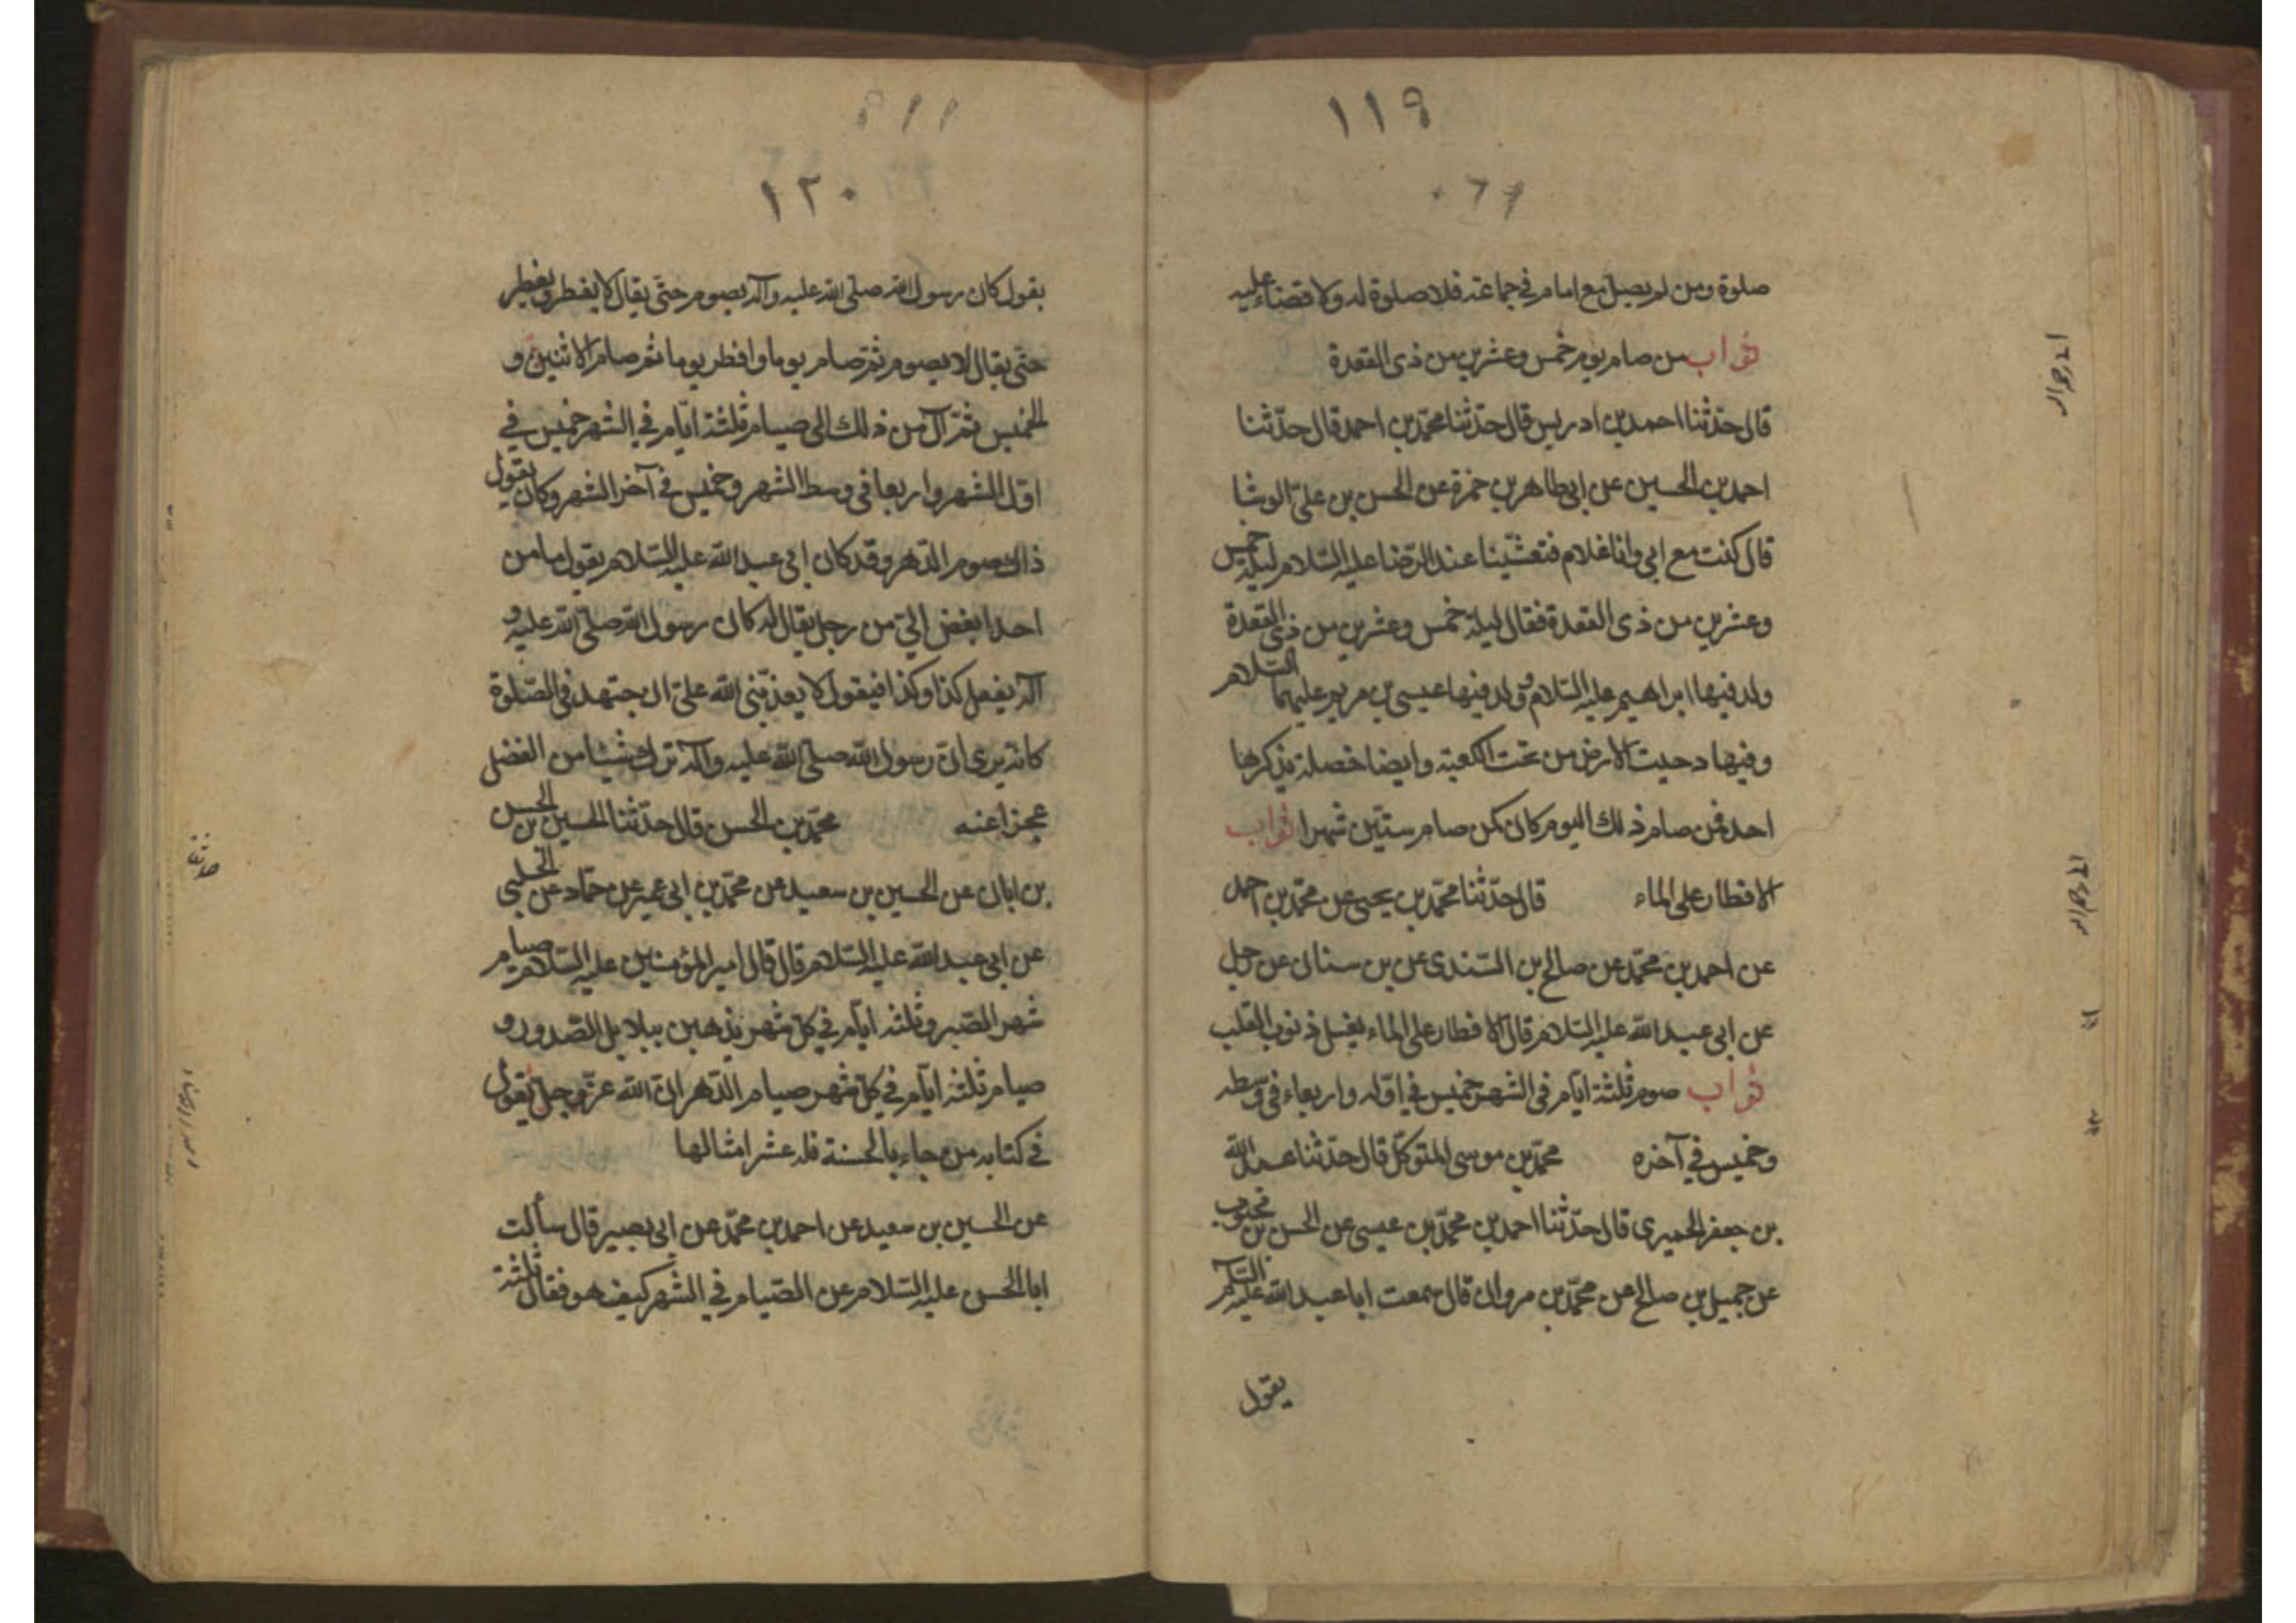 ١١٩
صلوة ومن لم يصل مع امام في جماعة فلا صلوة له ولا قضاء عليه
ثواب من صام يوم خمس وعشرين من ذى القعدة
قال حدّثنا احمد بن ادريس قال حدّثنا محمّد بن احمد قال حدّثنا
احمد بن الحسين عن ابي طاهر بن حمزة عن الحسن بن علىّ الوشا
قال كنت مع ابي وانا غلام فتعشّينا عند الرّضا عليه السّلام ليلة خمس
وعشرين من ذى القعدة فقال ليلة خمس وعشرين من ذى القعدة
ولد فيها ابراهيم عليه السّلام و ولد فيها عيسى بن مريم عليهما السّلام
وفيها دحيت الارض من تحت الكعبة وايضا خصلة يذكرها
احد فمن صام ذلك اليوم كان كمن صام ستّين شهرا ثواب
الافطار على الماء قال حدّثنا محمّد بن يحيى عن محمّد بن احمد
عن احمد بن محمّد عن صالح بن السّندى عن بن سنان عن رجل
عن ابي عبد الله عليه السّلام قال الافطار على الماء يغسل ذنوب القلب
ثواب صوم ثلثة ايّام فى الشهر خميس في اوّله واربعاء فى وسطه
وخميس في آخره محمّد بن موسى المتوكّل قال حدّثنا عبد الله
بن جعفر الحميرى قال حدّثنا احمد بن محمّد بن عيسى عن الحسن بن محبوب
عن جميل بن صالح عن محمّد بن مروان قال سمعت ابا عبد الله عليه السّلام
يقول
١٢٠
يقول كان رسول الله صلّى الله عليه وآله يصوم حتّى يقال لا يفطر ويفطر
حتّى يقال لا يصوم ثمّ صام يوما وافطر يوما ثم صام الاثنين و
الخميس ثمّ آل من ذلك الى صيام ثلثة ايّام في الشهر خميس في
اوّل الشهر واربعا فى وسط الشهر وخميس في آخر الشهر وكان يقول
ذلك صوم الدّهر وقد كان ابي عبد الله عليه السّلام يقول ما من
احد ابغض الىّ من رجل يقال له كان رسول الله صلّى الله عليه و
آله يفعل كذا وكذا فيقول لا يعذّبنى الله على ان اجتهد فى الصّلوة
كانه يرى انّ رسول الله صلّى الله عليه وآله ترك شيئا من الفضل
عجزا عنه محمّد بن الحسن قال حدّثنا الحسين بن الحسن
بن ابان عن الحسين بن سعيد عن محمّد بن ابي عمير عن حمّاد عن الحلبى
عن ابي عبد الله عليه السّلام قال قال امير المؤمنين عليه السّلام صيام
شهر الصّبر وثلثة ايّام في كلّ شهر يذهبن ببلابل الصّدور و
صيام ثلثة ايّام في كلّ شهر صيام الدّهر انّ الله عزّ وجلّ يقول
في كتابه من جاء بالحسنة فله عشر امثالها
عن الحسين بن سعيد عن احمد بن محمّد عن ابي بصير قال سألت
ابا الحسن عليه السّلام عن الصّيام في الشّهر كيف هو فقال ثلثة